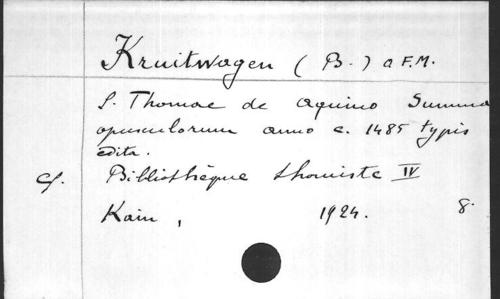 Kruitwagen (B.) O F.M.
S. Thomae de Aquino Summa
opusculorum anno c. 1485 typis
edita.
Cf. Bibliothèque thomiste IV
Kain, 1924. 8.